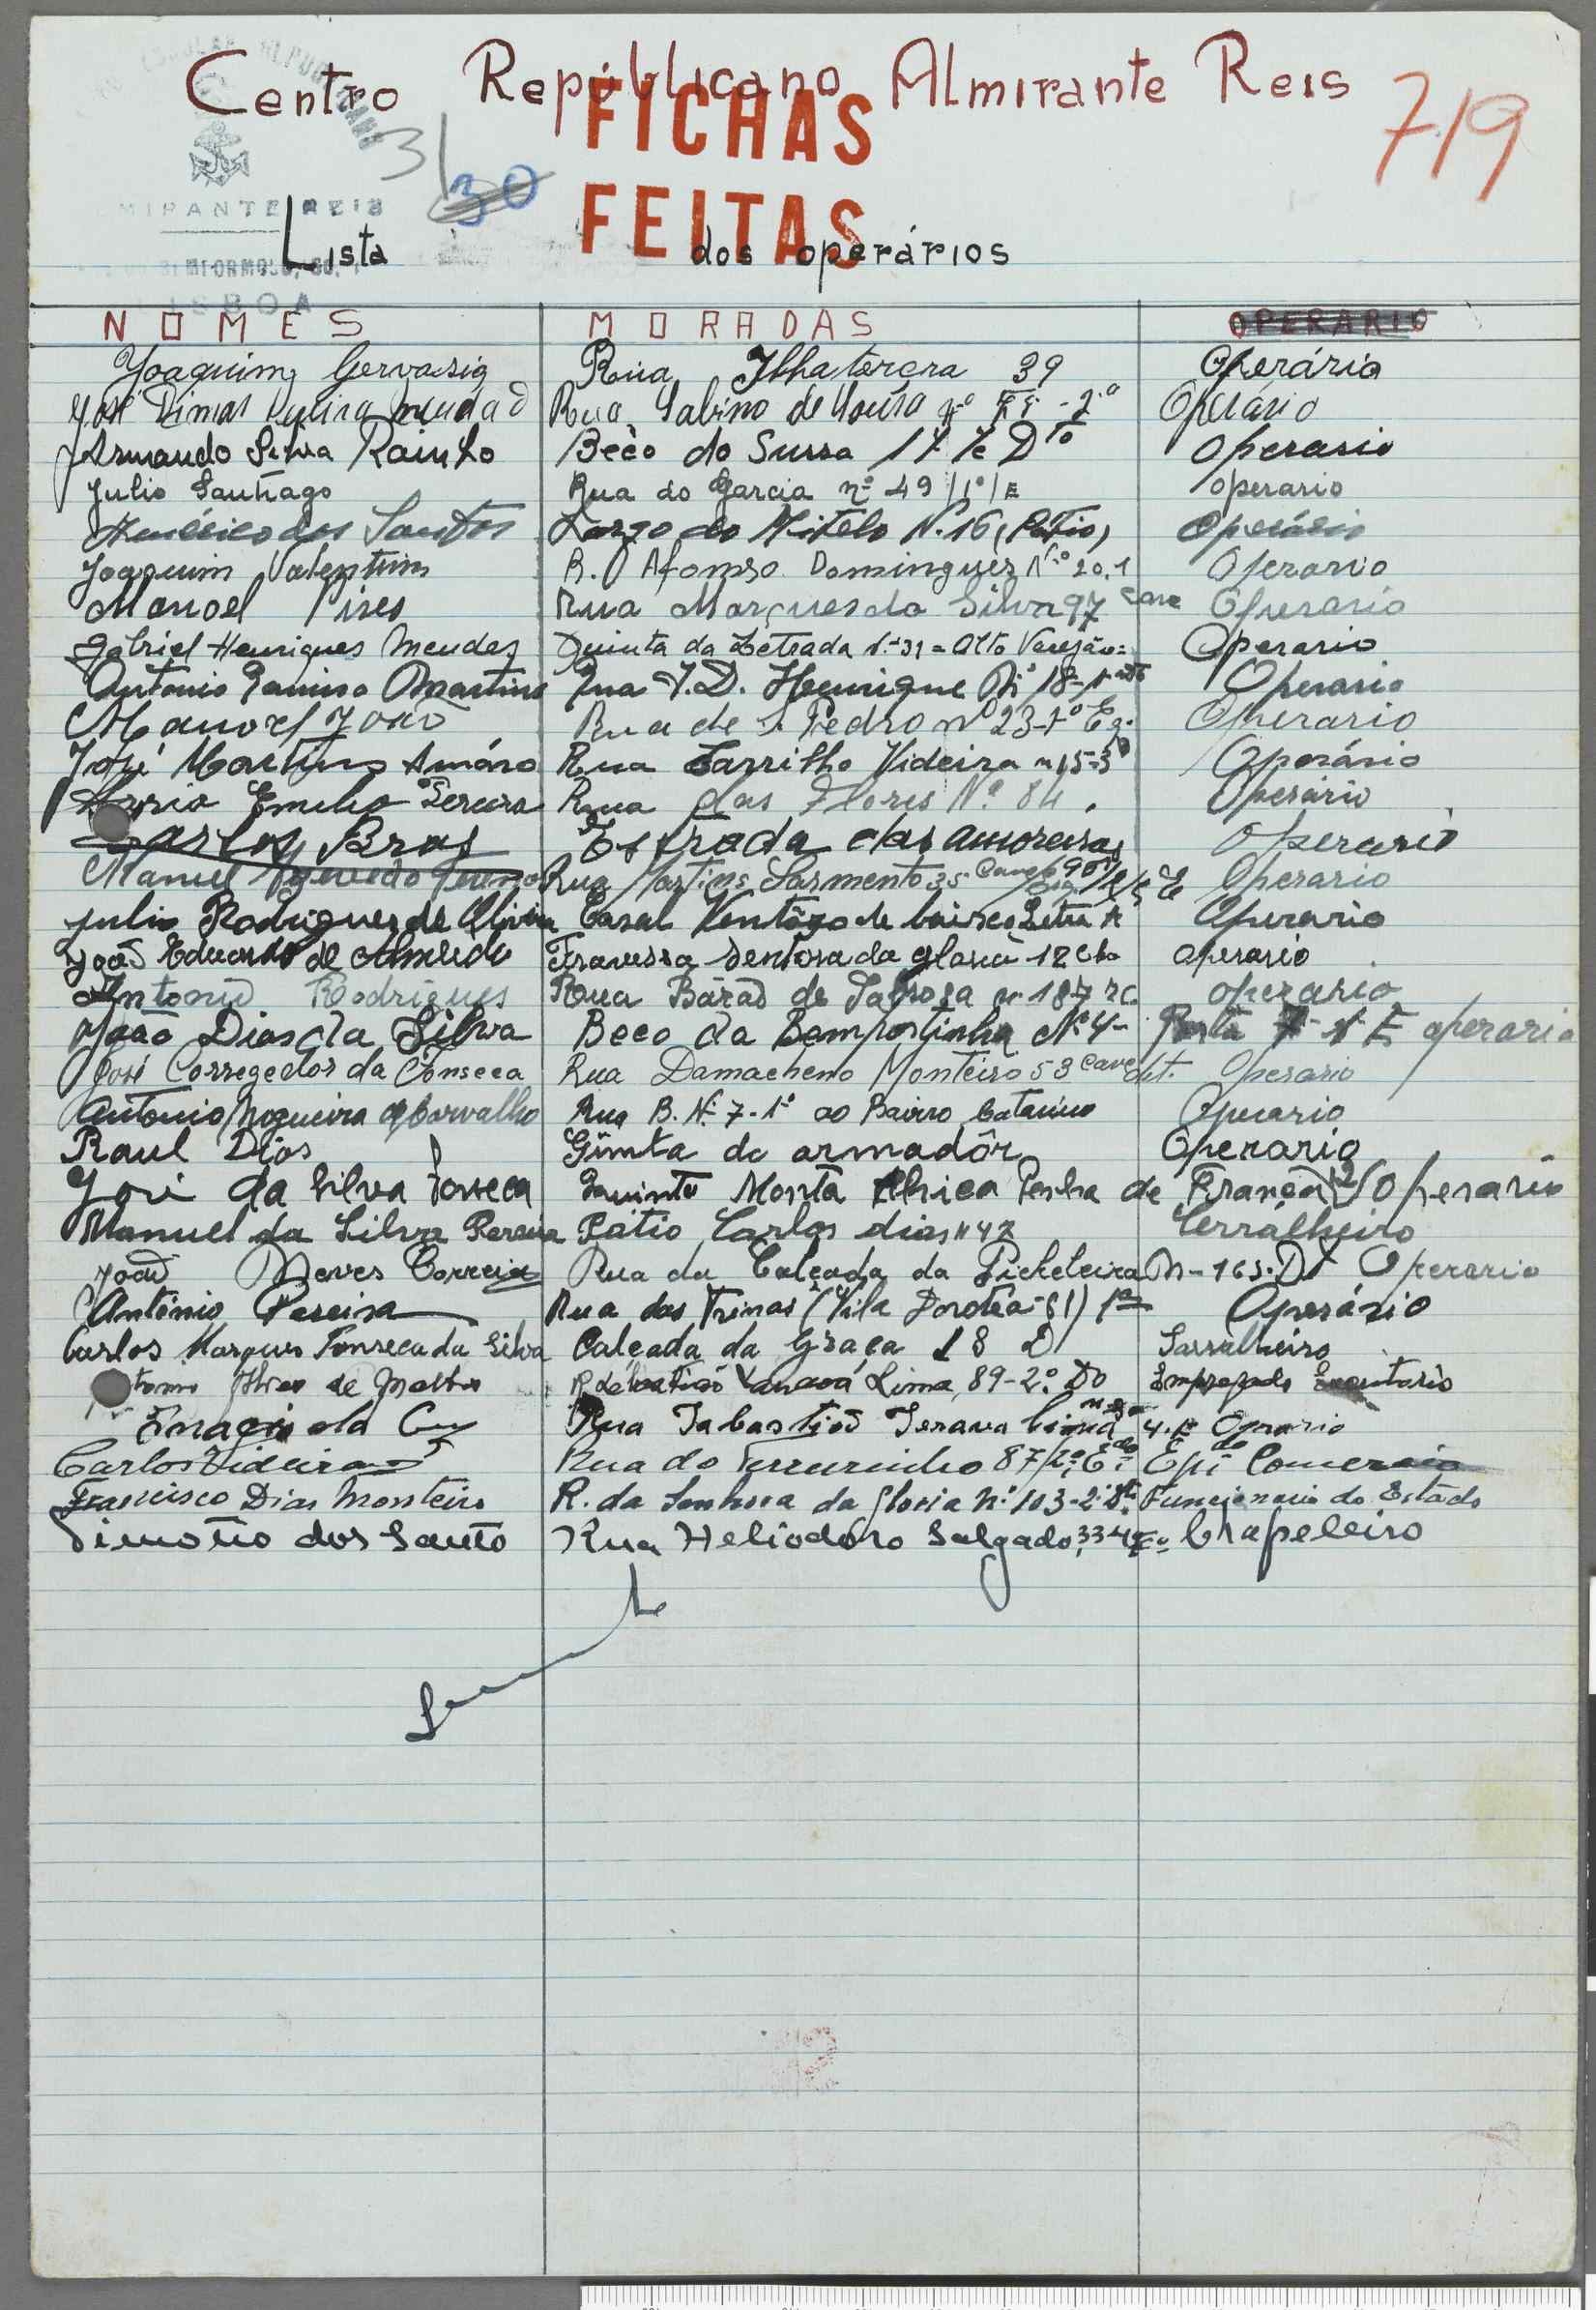 Centro Repúblicano Almirante Reis
719
FICHAS
FEITAS
31 30
MIRANTE REIS
Lista dos operários
LISBOA
NOMES MORADAS OPERARIO
Joaquim Gervasio Rua Ilha terçera 39 Operário
José Dimas Rua Sabino de Sousa nº - 2.º Operário
Armando Silva Rainho Bêco do Surra 17 Dto Operario
Julio Santiago Rua do Garcia nº 49 / 1º / E operario
Américo dos Santos Largo do Mitelo N. 16 (Patio) Operário
Joaquim Valentim R. Afonso Domingues N.º 20.1 Operario
Manoel Pires Rua Marques da Silva 97 cave Operario
Gabriel Henriques Mendes Quinta da Letrada 1.-31 = Alto Varejão = Operario
Antonio Ramiro Martins Rua I.D. Henrique Nº 18-1º Operario
Manoel João Rua de S. Pedro nº 23-1º Eq. Operario
José Martins Amáro Rua Carrilho Videira n 15-3º Operário
Emilio Pereira Rua das Flores Nº 84. Operário
Carlos Bras Estrada das amoreiras operario
Manuel Rua Martins Sarmento 35 Cave Operario
Julio Rodrigues de Oliveira Casal Ventôzo de baixo Letra A Operario
João Eduardo de Almeida Travessa Senhora da gloria 12 operario
Antonio Rodrigues Rua Bárão de Sabrosa nº 187 rc operario
João Dias da Silva Beco da Bempostinha Nº 4- Porta E operario
José Corregedor da Fonseca Rua Damacheno Monteiro 53 cave dt. Operario
Antonio Nogueira Carvalho Rua B. Nº 7-1º ao Bairro Catarino Operario
Raul Dias Ginta do armadôr Operario
José da Silva Fonseca Quinta Monta Penha de França 12 Operario
Manuel da Silva Pereira Patio Carlos dias nº 47 Cerralheiro
João Neves Correia Rua da Calçada da Picheleira N-163-Dt Operario
António Pereira Rua das Trinas (Vila Dorotea-81) 1º Operário
Carlos Marques Fonseca da Silva Calçada da Graça 18 D Sarralheiro
de Mattos Lima, 89-2º Do Empregado
Rua 4. E Operario
Carlos Videira Rua do Terreirinho 87/2º Edo. Comercio
Francisco Dias Monteiro R. da Senhora da Gloria nº 103-2º Dt. Funcionario do Estado
Timotio dos Santo Rua Heliodoro Salgado, 33 4º Eº Chapeleiro